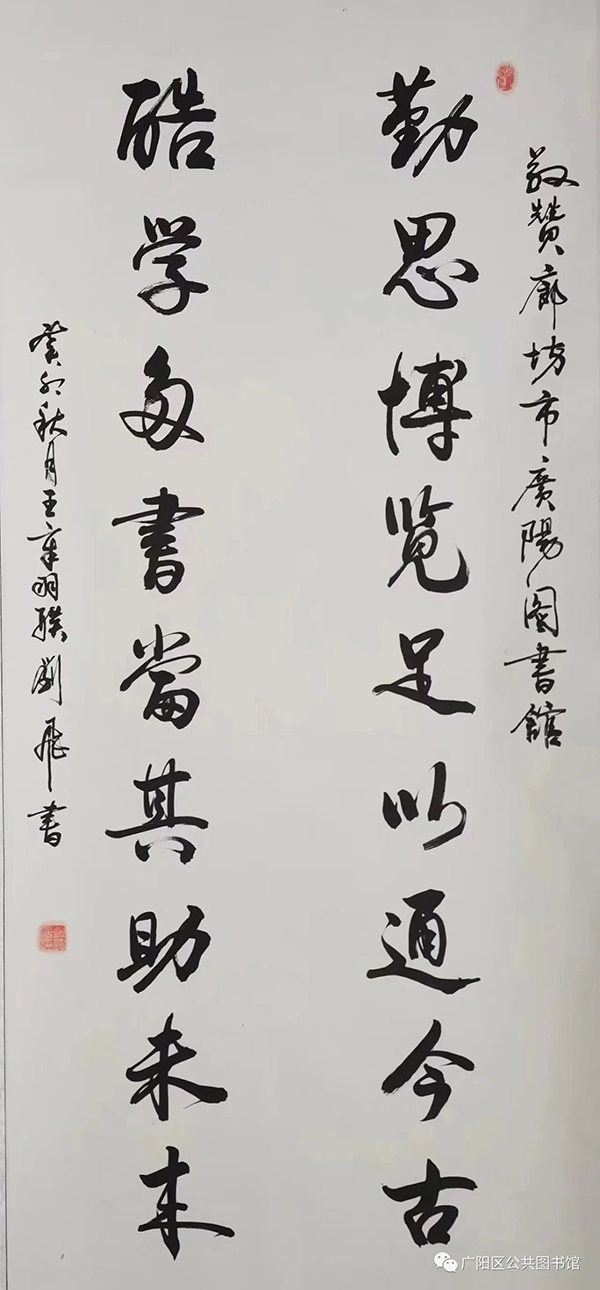 敬赞廊坊市廣陽図書館
勤思博览足以通今古
酷学多書當其助未来
癸卯秋月王章明聯劉飛書
广阳区公共图书馆